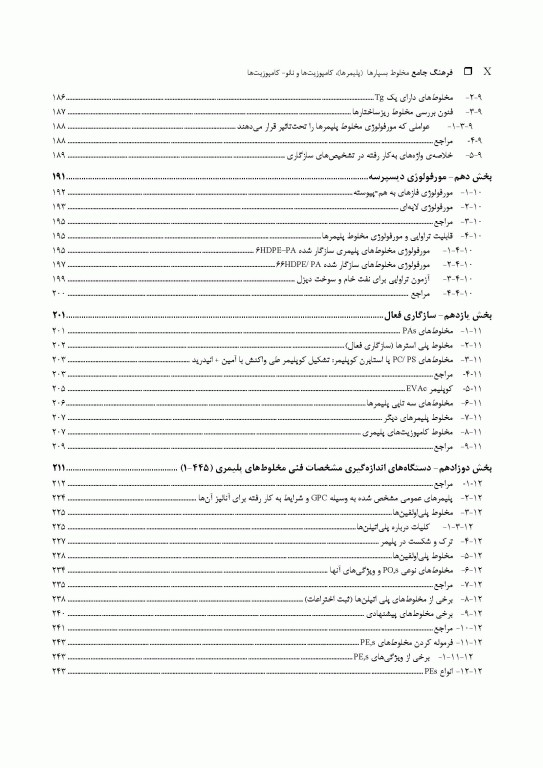 X ❒ فرهنگ جامع مخلوط بسپارها (پلیمرها)، کامپوزیت‌ها و نانو- کامپوزیت‌ها
۹-۲- مخلوط‌های دارای یک Tg ۱۸۶
۹-۳- فنون بررسی مخلوط ریزساختارها ۱۸۷
۹-۳-۱- عواملی که مورفولوژی مخلوط پلیمرها را تحت‌تاثیر قرار می‌دهند ۱۸۸
۹-۴- مراجع ۱۸۸
۹-۵- خلاصه‌ی واژه‌های به‌کار رفته در تشخیص‌های سازگاری ۱۸۹
بخش دهم- مورفولوژی دیسپرسه ۱۹۱
۱۰-۱- مورفولوژی فازهای به هم-پیوسته ۱۹۲
۱۰-۲- مورفولوژی لایه‌ای ۱۹۳
۱۰-۳- مراجع ۱۹۵
۱۰-۴- قابلیت تراوایی و مورفولوژی مخلوط پلیمرها ۱۹۵
۱۰-۴-۱- مورفولوژی مخلوط‌های پلیمری سازگار شده ۶HDPE-PA ۱۹۵
۱۰-۴-۲- مورفولوژی مخلوط‌های سازگار شده ۶۶HDPE/ PA ۱۹۷
۱۰-۴-۳- آزمون تراوایی برای نفت خام و سوخت دیزل ۱۹۹
۱۰-۴-۴- مراجع ۲۰۰
بخش یازدهم- سازگاری فعال ۲۰۱
۱۱-۱- مخلوط‌های PAs ۲۰۱
۱۱-۲- مخلوط پلی استرها (سازگاری فعال) ۲۰۲
۱۱-۳- مخلوط‌های PC/ PS یا استایرن کوپلیمر: تشکیل کوپلیمر طی واکنش با آمین + انیدرید ۲۰۳
۱۱-۴- مراجع ۲۰۳
۱۱-۵- کوپلیمر EVAc ۲۰۵
۱۱-۶- مخلوط‌های سه تایی پلیمرها ۲۰۶
۱۱-۷- مخلوط پلیمرهای دیگر ۲۰۷
۱۱-۸- مخلوط کامپوزیت‌های پلیمری ۲۰۷
۱۱-۹- مراجع ۲۰۹
بخش دوازدهم- دستگاه‌های اندازه‌گیری مشخصات فنی مخلوط‌های پلیمری (۴۴۵-۱) ۲۱۱
۱۲-۱- مراجع ۲۱۲
۱۲-۲- پلیمرهای عمومی مشخص شده به وسیله GPC و شرایط به کار رفته برای آنالیز آن‌ها ۲۲۴
۱۲-۳- مخلوط پلی‌اولفین‌ها ۲۲۵
۱۲-۳-۱- کلیات درباره پلی‌اتیلن‌ها ۲۲۵
۱۲-۴- ترک و شکست در پلیمر ۲۲۷
۱۲-۵- مخلوط پلی‌اولفین‌ها ۲۲۸
۱۲-۶- مخلوط‌های نوعی PO,s و ویژگی‌های آنها ۲۳۴
۱۲-۷- مراجع ۲۳۵
۱۲-۸- برخی از مخلوط‌های پلی اتیلن‌ها (ثبت اختراعات) ۲۳۸
۱۲-۹- برخی مخلوط‌های پیشنهادی ۲۴۰
۱۲-۱۰- مراجع ۲۴۱
۱۲-۱۱- فرموله کردن مخلوط‌های PE,s ۲۴۳
۱۲-۱۱-۱- برخی از ویژگی‌های PE,s ۲۴۳
۱۲-۱۲- انواع PEs ۲۴۳